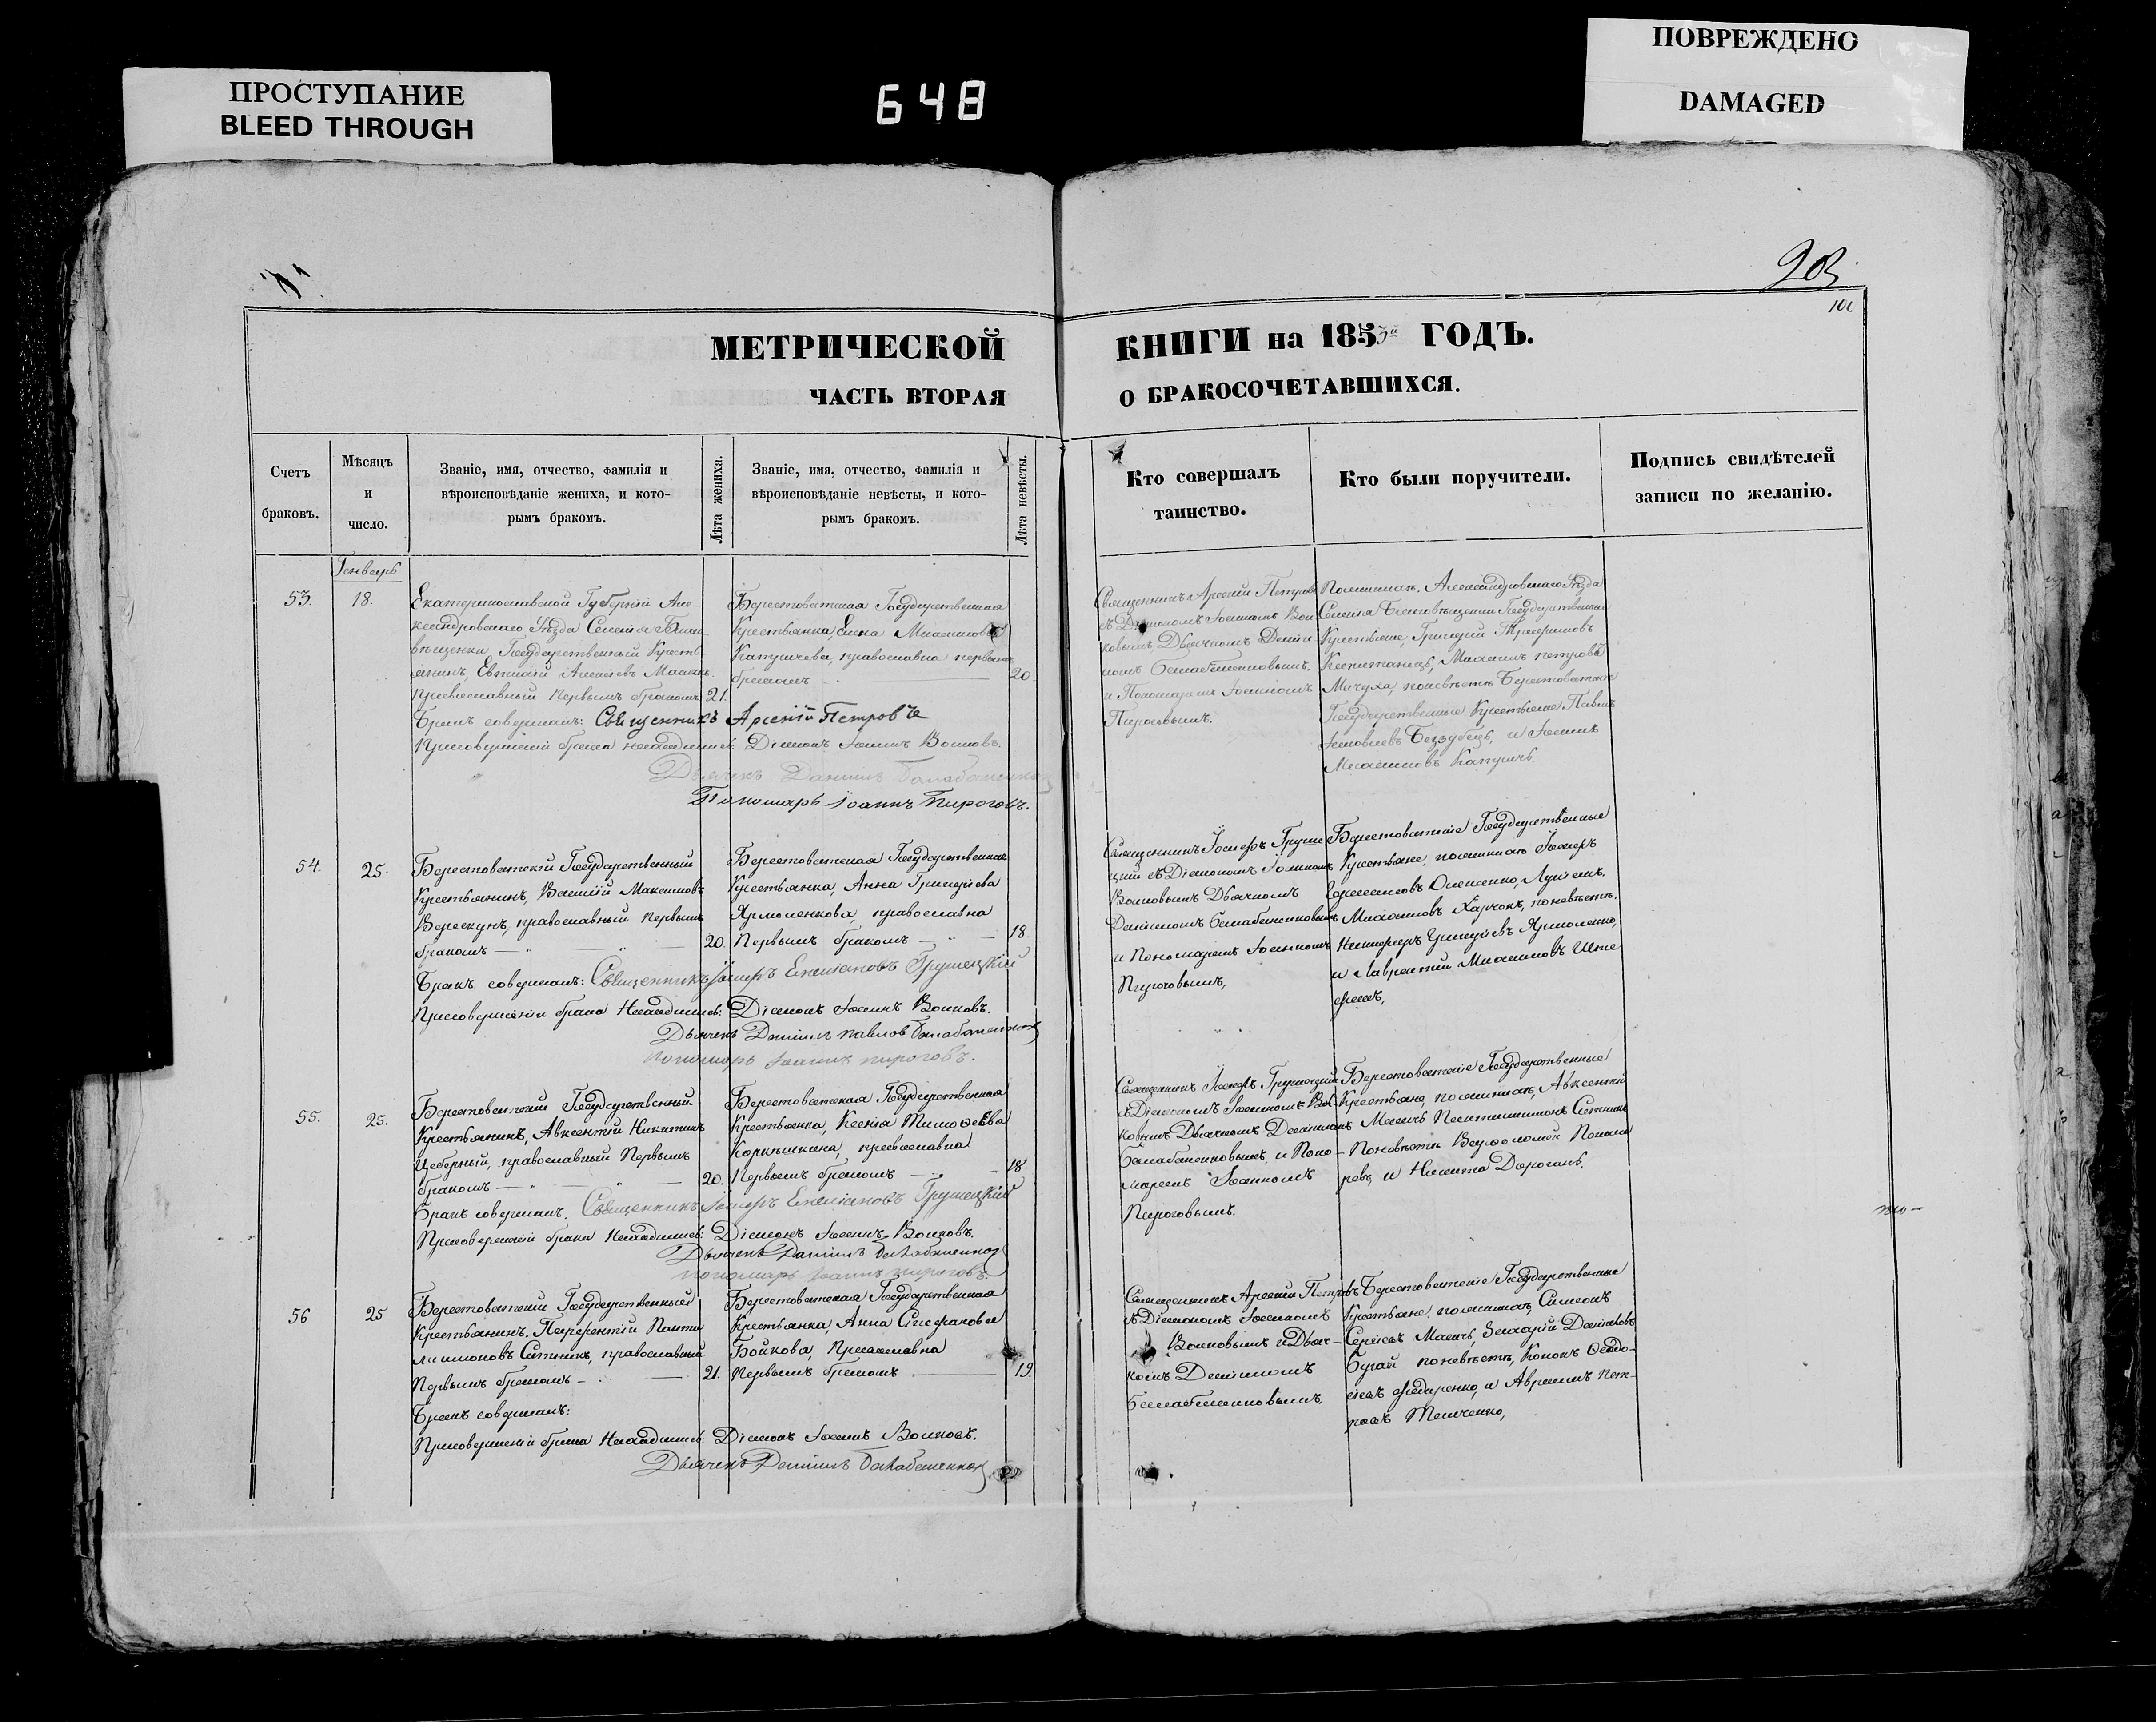 ПРОСТУПАНИЕ
BLEED THROUGH
648
ПОВРЕЖДЕНО
DAMAGED
203
МЕТРИЧЕСКОЙ
КНИГИ на 1853й ГОДЪ.
ЧАСТЬ ВТОРАЯ
О БРАКОСОЧЕТАВШИХСЯ.
Счетъ
браковъ.
Мѣсяцъ
и
число.
Званіе, имя, отчество, фамилія и
вѣроисповѣданіе жениха, и кото-
рымъ бракомъ.
Лѣта жениха.
Званіе, имя, отчество, фамилія и
вѣроисповѣданіе невѣсты, и кото-
рымъ бракомъ.
Лѣта невѣсты.
Кто совершалъ
таинство.
Кто были поручители.
Подпись свидѣтелей
записи по желанію.
Генварь
53.
18.
Екатеринославской Губерніи Але-
ксандровскаго Уѣзда Селенія Благо-
вѣщенки, Государственный Кресть-
янинъ, Евтихій Алексіевъ
православный первымъ бракомъ
21.
Бракъ совершалъ: Священникъ Арсеній Петровъ
При совершеніи брака находились: Діаконъ Іоаннъ Волковъ.
Дьячекъ Даніилъ Балабаненко
Пономарь Іоаннъ Пироговъ.
Берестоватская Государственная
Крестьянка, Елена Михаилова
православна первымъ
бракомъ
20.
Священникъ Арсеній Петровъ
съ Діакономъ Іоанномъ Вол-
ковымъ, Дьячкомъ Даніи-
ломъ Балабаненковымъ.
и Пономаремъ Іоанномъ
Пироговымъ.
По женихѣ, Александровскаго Уѣзда
Селенія Благовѣщенки Государственные
Крестьяне, Григорій Трофимовъ
Михаилъ Петровъ
Мичуха, по невѣстѣ Берестоватскіе
Государственные Крестьяне Павелъ
Беззубецъ, и Іоаннъ
Михаиловъ
54.
25.
Берестоватскій Государственный
Крестьянинъ, Василій Максимовъ
Верескунъ, православный первымъ
бракомъ
20.
Бракъ совершалъ: Священникъ Іосифъ Емеліановъ Грушецкій
При совершеніи брака находились: Діаконъ Іоаннъ Волковъ.
Дьячекъ Даніилъ Павловъ Балабаненко
Пономарь Іоаннъ Пироговъ.
Берестоватская Государственная
Крестьянка, Анна Григоріева
Ярмоленкова, православна
Первымъ бракомъ
18.
Священникъ Іосифъ Груше-
цкій съ Діакономъ Іоанномъ
Волковымъ Дьячкомъ
Даніиломъ Балабаненковымъ
и Пономаремъ Іоанномъ
Пироговымъ,
Берестоватскіе Государственные
Крестьяне, по женихѣ Іосифъ
Олексенко,
Михаиловъ Харчокъ, по невѣстѣ,
Никифоръ Григоріевъ Ярмоленко,
и Лаврентій Михаиловъ
55.
25.
Берестоватскій Государственный
Крестьянинъ, Авксентій Никитинъ
Цеберный, православный Первымъ
бракомъ
20.
Бракъ совершалъ. Священникъ Іосифъ Емеліановъ Грушецкій
При совершеніи брака находились: Діаконъ Іоаннъ Волковъ.
Дьячекъ Даніилъ Балабаненко
Пономарь Іоаннъ Пироговъ.
Берестоватская Государственная
Крестьянка, Ксенія Тимоѳеева
Корнѣшкина, православна
Первымъ бракомъ
18.
Священникъ Іосифъ Грушецкій
съ Діакономъ Іоанномъ Вол-
ковымъ Дьячкомъ Даніиломъ
Балабаненковымъ, и Поно-
маремъ Іоанномъ
Пироговымъ.
Берестоватскіе Государственные
Крестьяне, по женихѣ, Авксентій
Пантелимонъ Ситникъ
По невѣстѣ Варѳоломей
и Никита Дороганъ.
56
25
Берестоватскій Государственный
Крестьянинъ. Парфентій Панте-
лимоновъ Ситникъ, православный
Первымъ бракомъ
21.
Бракъ совершалъ:
При совершеніи брака находились: Діаконъ Іоаннъ Волковъ.
Дьячекъ Даніилъ Балабаненко
Берестоватская Государственная
Крестьянка, Анна Стефанова
Бойкова, Православна
Первымъ бракомъ
19.
Священникъ Арсеній Петровъ
съ Діакономъ Іоанномъ
Волковымъ и Дьяч-
комъ Даніиломъ
Балабаненковымъ.
Берестоватскіе Государственные
Крестьяне, по женихѣ, Симеонъ
Захарій
Бугай по невѣстѣ, Кононъ Ѳедо-
Федоренко, и Авраамъ Пет-
ровъ Ткаченко,